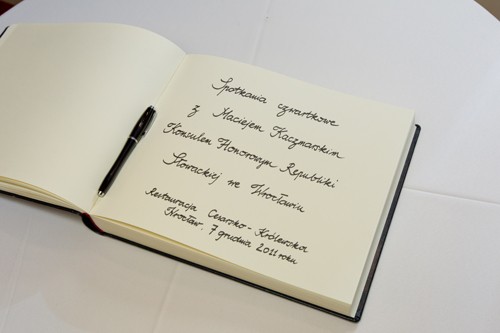 Spotkania czwartkowe
z Maciejem Kaczmarskim
Konsulem Honorowym Republiki
Słowackiej we Wrocławiu
Restauracja Cesarsko-Królewska
Wrocław. 7 grudnia 2011 roku